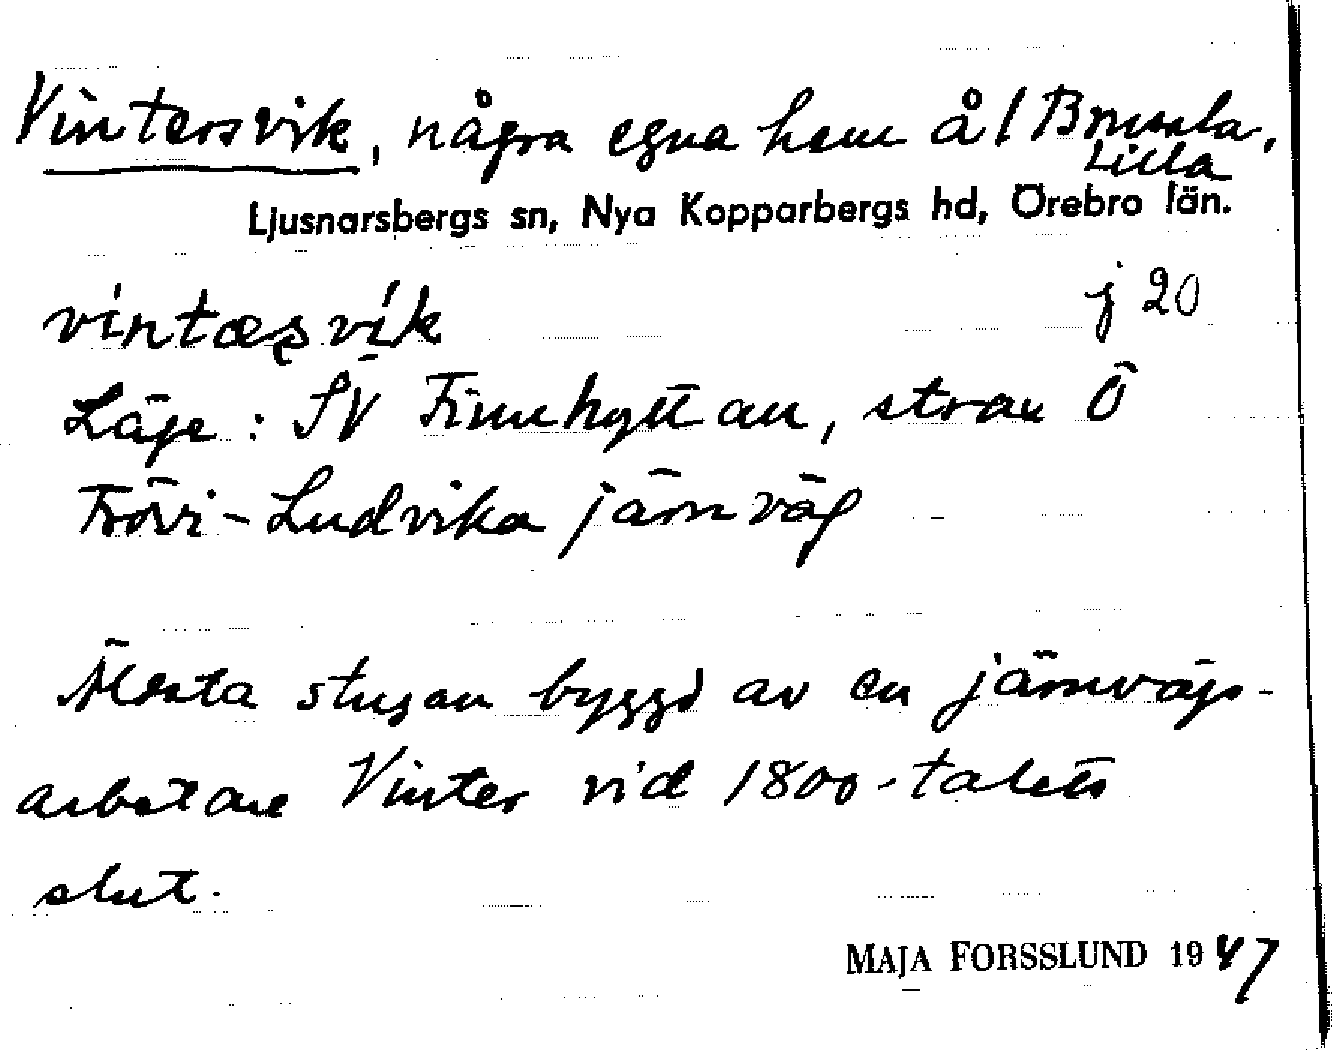 Vintersvik, några egna hem å 1 Brussla,
Lilla
Ljusnarsbergs sn, Nya Kopparbergs hd, Örebro län.
vintæṣvik
j 20
Läge: SV Finnhyttan, strax Ö
Frövi-Ludvika järnväg
Äldsta stugan byggd av en järnvägs-
arbetare Vinter vid 1800-talets
slut.
MAJA FORSSLUND 1947